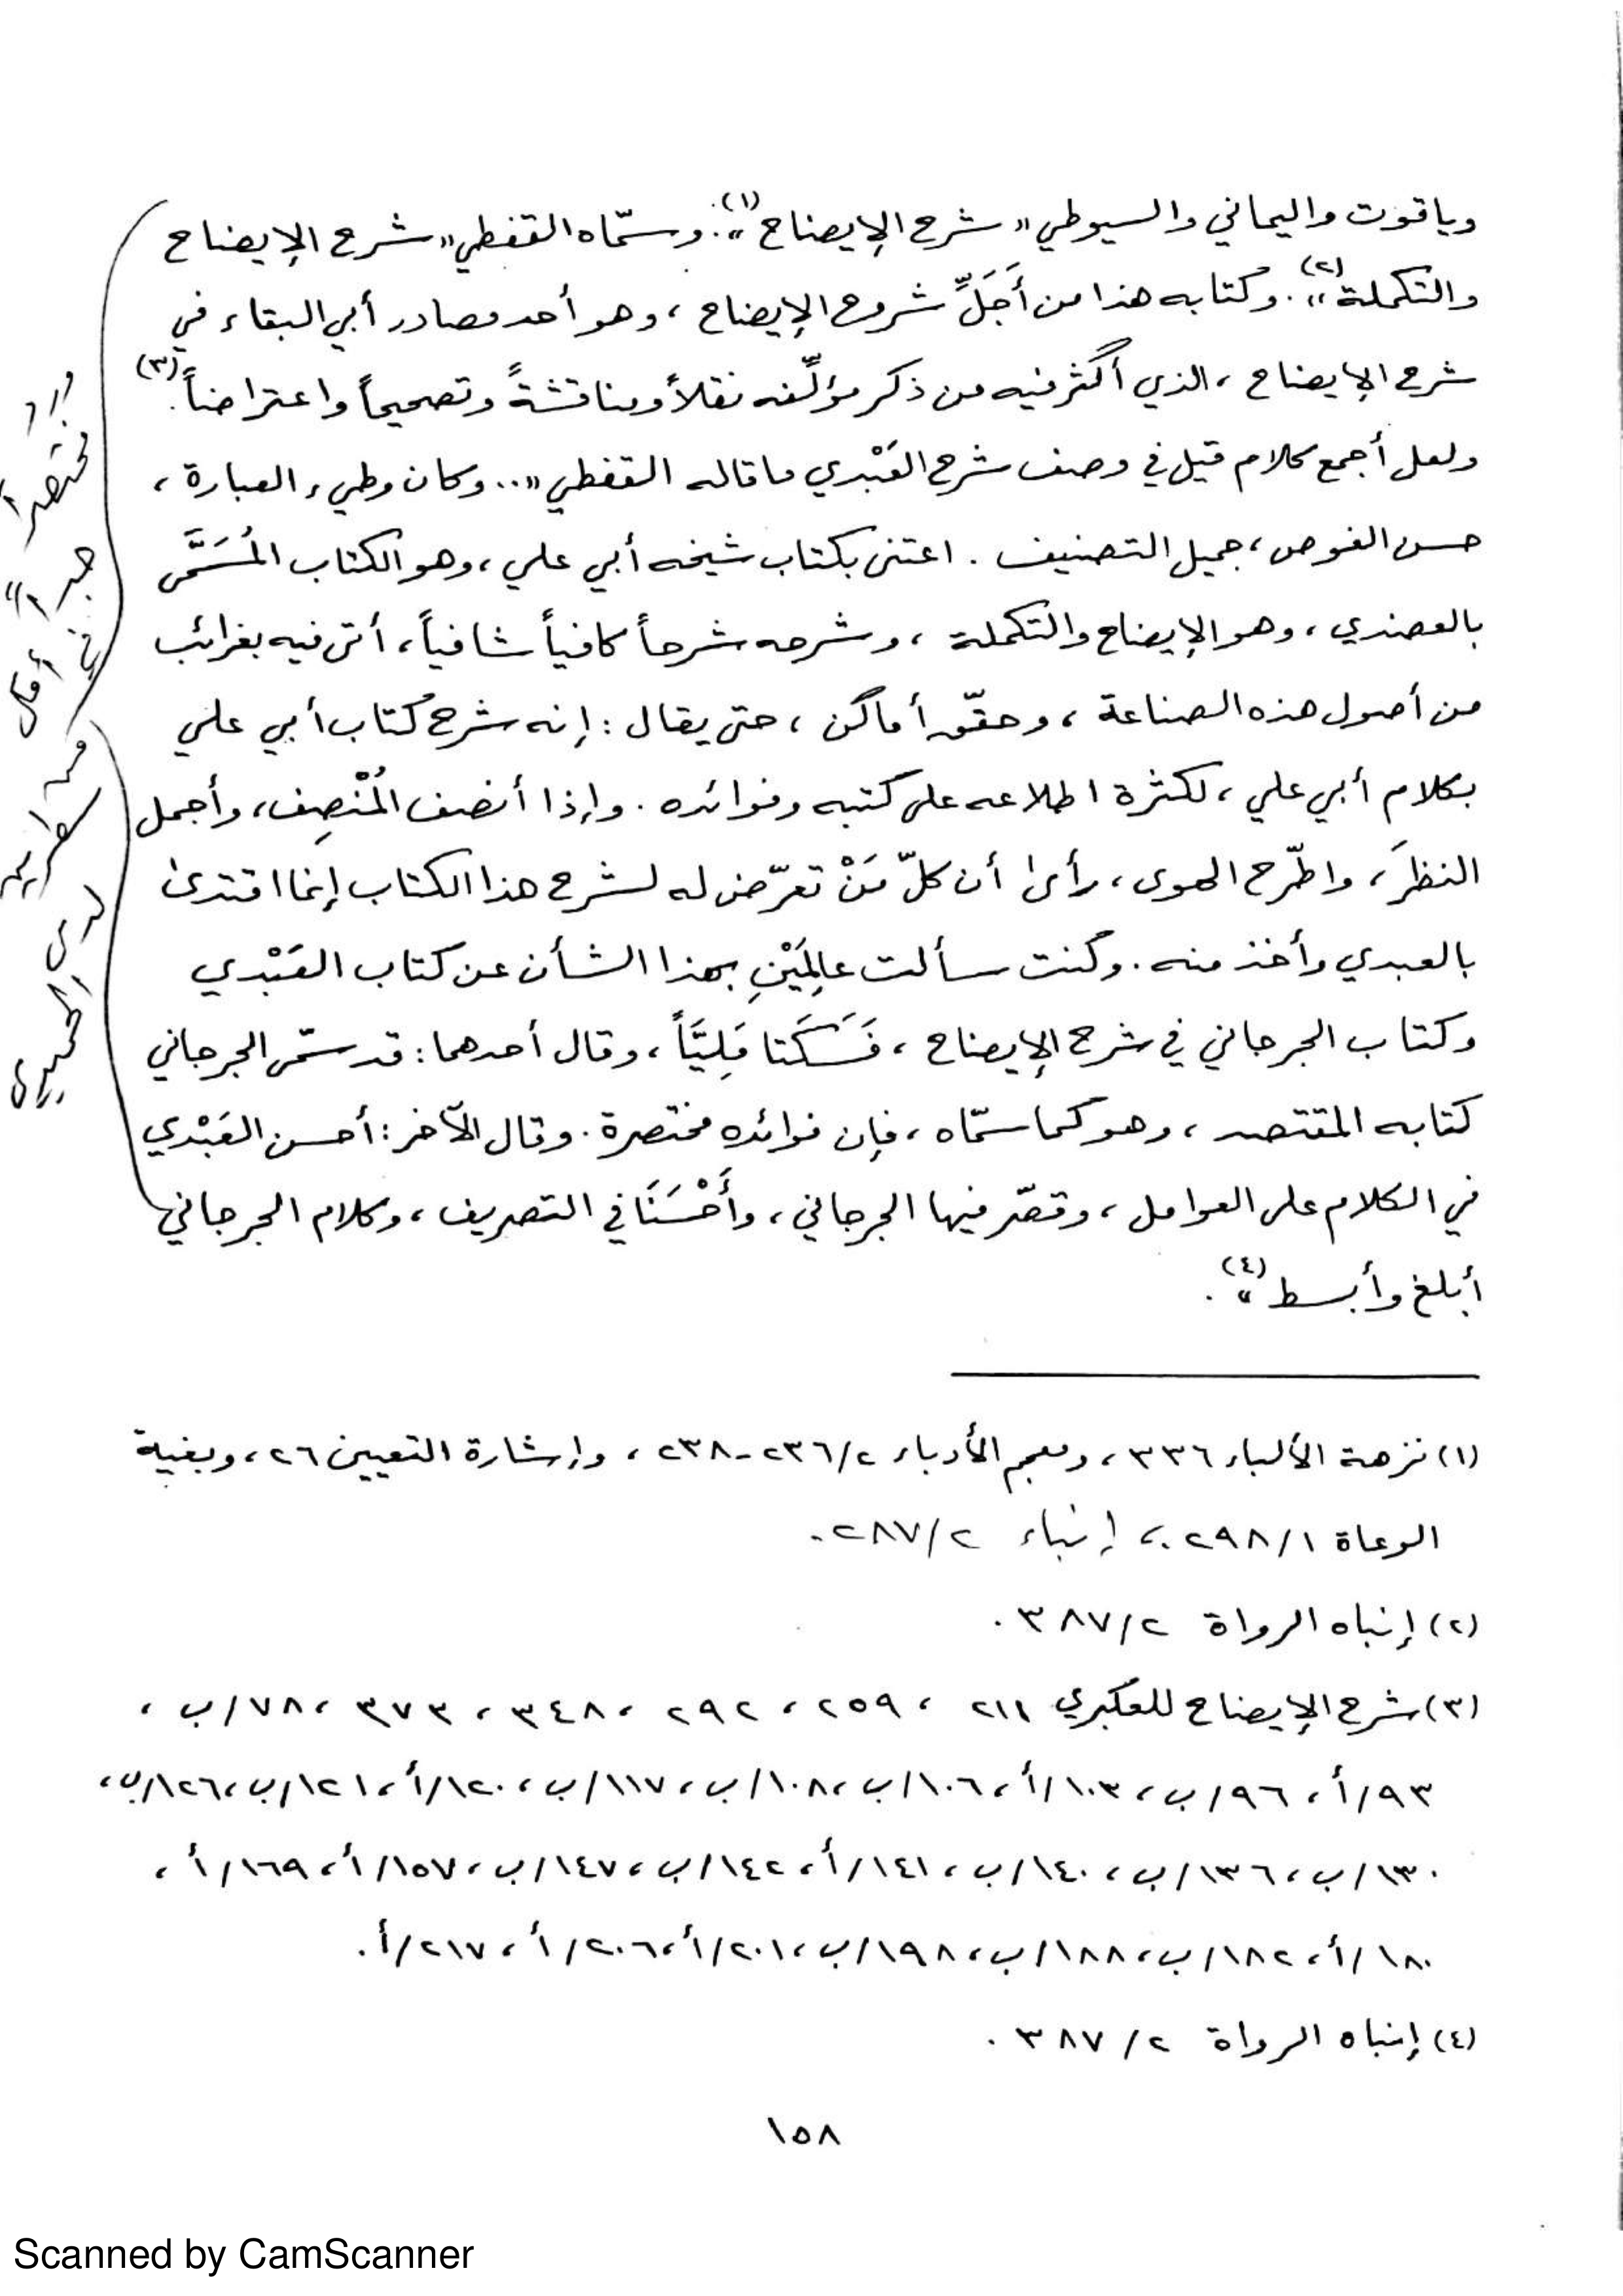 وياقوت واليماني والسيوطي « شرح الإيضاح »(١). وسمّاه القفطي « شرح الإيضاح
والتكملة »(٢). وكتابه هذا من أَجَلِّ شروح الإيضاح ، وهو أحد مصادر أبي البقاء في
شرح الإيضاح ، الذي أكثر فيه من ذكر مؤلِّفه نقلاً ومناقشةً وتصحيحاً واعتراضاً.(٣)
ولعل أجمع كلام قيل في وصف شرح العَبْدي ما قاله القفطي « .. وكان وطيء العبارة ،
حسن الغوص ، جميل التصنيف . اعتنى بكتاب شيخه أبي علي ، وهو الكتاب المُسَمَّى
بالعضدي ، وهو الإيضاح والتكملة ، وشرحه شرحاً كافياً شافياً ، أتى فيه بغرائب
من أصول هذه الصناعة ، وحقّق أماكن ، حتى يقال : إنه شرح كتاب أبي علي
بكلام أبي علي ، لكثرة اطلاعه على كتبه وفوائده . وإذا أنصف المُنْصِف ، وأجمل
النظرَ ، واطّرح الهوى ، رأى أن كلّ مَنْ تعرّض له لشرح هذا الكتاب إنما اقتدى
بالعبدي وأخذ منه . وكنت سألت عالِمَيْنِ بهذا الشأن عن كتاب العَبْدي
وكتاب الجرجاني في شرح الإيضاح ، فَسَكَتا مَلِيَّاً ، وقال أحدهما : قد سمّى الجرجاني
كتابه المقتصد ، وهو كما سمّاه ، فإن فوائده مختصرة . وقال الآخر : أحسن العَبْدي
في الكلام على العوامل ، وقصّر فيها الجرجاني ، وأَحْسَنَا في التصريف ، وكلام الجرجاني
أبلغ وأبسط »(٤).
مختصراً
جداً
في أقل
من
لدى
الحميري
(١) نزهة الألباء ٣٣٦ ، ومعجم الأدباء ٢/ ٢٣٦-٢٣٨ ، وإشارة التعيين ٢٦ ، وبغية
الوعاة ١/ ٢٩٨ ، إنباه ٢/ ٢٨٧ .
(٢) إنباه الرواة ٢/ ٣٨٧ .
(٣) شرح الإيضاح للعكبري ٢١١ ، ٢٥٩ ، ٢٩٢ ، ٣٤٨ ، ٣٧٣ ، ٧٨/ب ،
٩٣/أ ، ٩٦/ب ، ١٠٣/أ ، ١٠٦/ب ، ١٠٨/ب ، ١١٧/ب ، ١٢٠/أ ، ١٢١/ب ، ١٢٦/ب ،
١٣٠/ب ، ١٣٦/ب ، ١٤٠/ب ، ١٤١/أ ، ١٤٢/ب ، ١٤٧/ب ، ١٥٧/أ ، ١٦٩/أ ،
١٨٠/أ ، ١٨٢/ب ، ١٨٨/ب ، ١٩٨/ب ، ٢٠١/أ ، ٢٠٦/أ ، ٢١٧/أ .
(٤) إنباه الرواة ٢/ ٣٨٧ .
١٥٨
Scanned by CamScanner